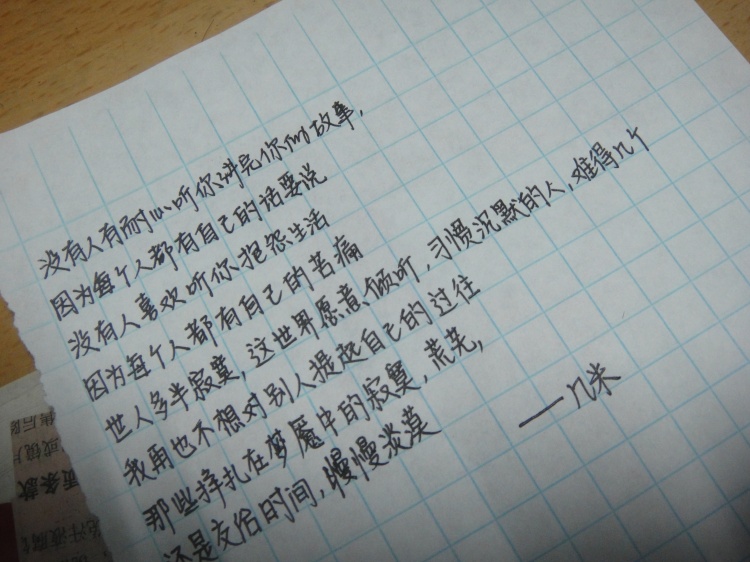 没有人有耐心听你讲完你的故事，
因为每个人都有自己的话要说
没有人喜欢听你抱怨生活
因为每个人都有自己的苦痛
世人多半寂寞，这世界愿意倾听，习惯沉默的人，难得几个
我再也不想对别人提起自己的过往
那些挣扎在梦魇中的寂寞，荒芜，
还是交给时间，慢慢淡漠
——几米
条款